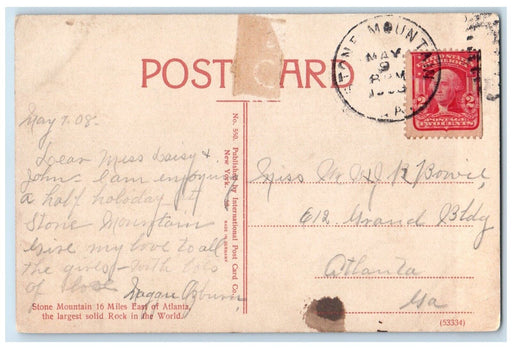 POST CARD
STONE MOUNTAIN
MAY
9
1908
GA.
UNITED STATES
OF AMERICA
2 2
POSTAGE
TWO CENTS
May 7. 08.
Dear Miss Daisy &
John:- I am enjoying
a half holoday at
Stone Mountain
Give my love to all
the girls - with lots
of love
No. 550. Published by International Post Card Co., New York.
MADE IN GERMANY
Miss W. & J. R. Bowie,
612 Grand Bldg
Atlanta
Ga
Stone Mountain 16 Miles East of Atlanta,
the largest solid Rock in the World.
(53334)